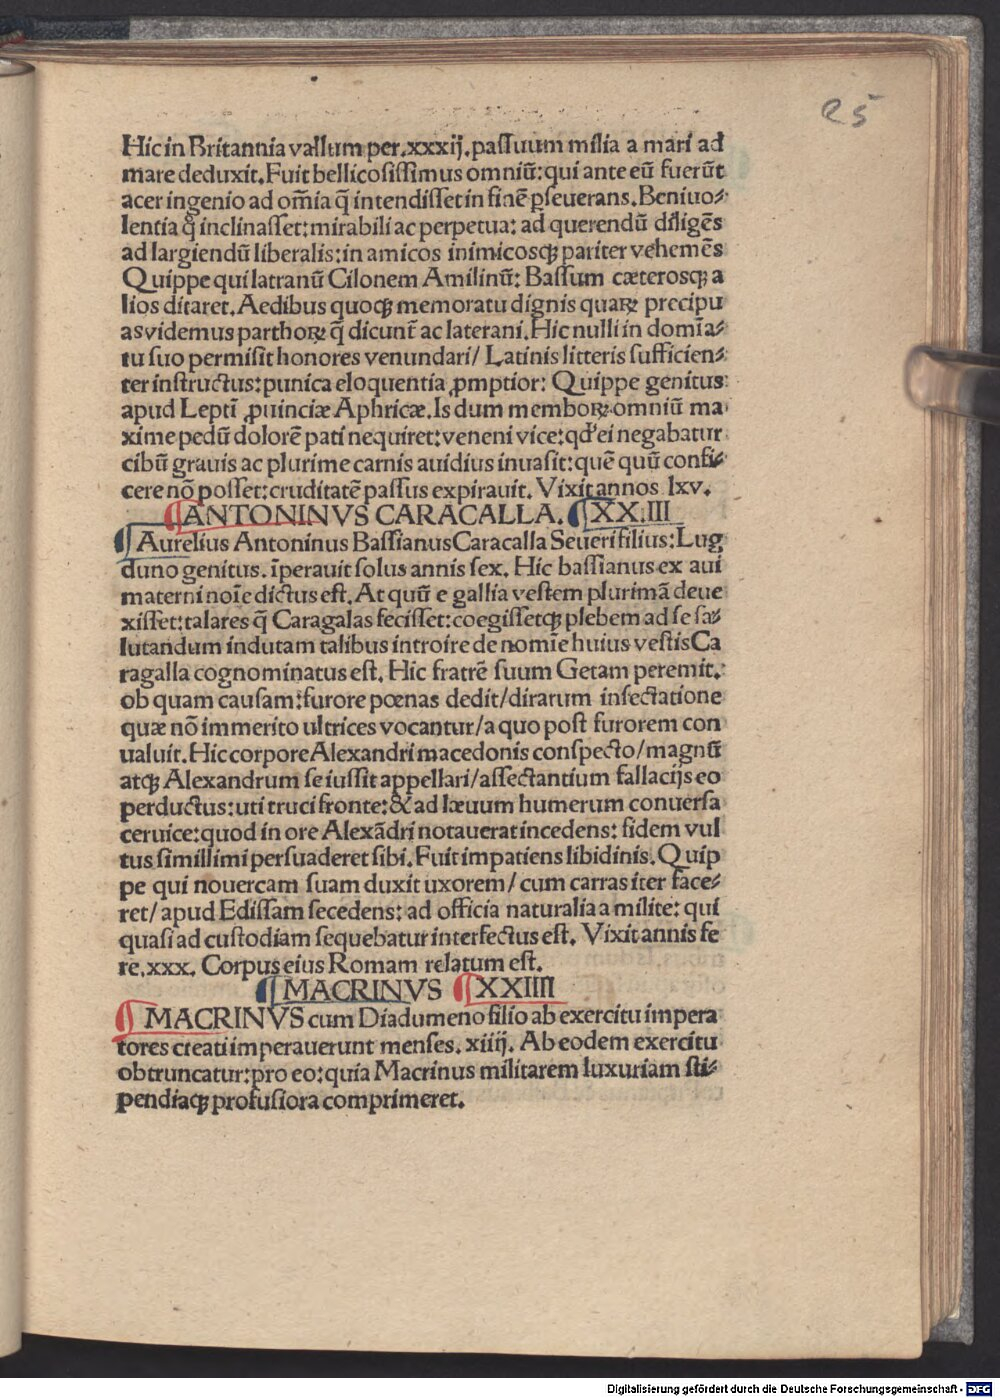 25
Hic in Britannia vallum per.xxxij.passuum milia a mari ad
mare deduxit.Fuit bellicosissimus omniū:qui ante eū fuerūt
acer ingenio ad om̄ia q̄ intendisset in finē ꝑseuerans.Beniuo⸗
lentia q̄ inclinasset:mirabili ac perpetua: ad querendū diligēs
ad largiendū liberalis:in amicos inimicosqꝫ pariter vehemēs
Quippe qui latranū Cilonem Amilinū: Bassum cæterosqꝫ a
lios ditaret.Aedibus quoqꝫ memoratu dignis quaꝝ precipu
as videmus parthoꝝ q̄ dicunt̄ ac laterani.Hic nulli in domīa⸗
tu suo permisit honores venundari/ Latinis litteris sufficien⸗
ter instructus:punica eloquentia ꝓmptior: Quippe genitus
apud Leptī ꝓuinciæ Aphricæ.Is dum memboꝝ omniū ma
xime pedū dolorē pati nequiret:veneni vice:qd' ei negabatur
cibū grauis ac plurime carnis auidius inuasit:quē quū confi⸗
cere nō posset:cruditatē passus expirauit. Vixit annos lxv.
¶ANTONINVS CARACALLA. ¶XX.III
¶Aurelius Antoninus Bassianus Caracalla Seueri filius:Lug
duno genitus. īperauit solus annis sex. Hic bassianus ex aui
materni noīe dictus est. At quū e gallia vestem plurimā deue
xisset:talares q̄ Caragalas fecisset:coegissetqꝫ plebem ad se sa⸗
lutandum indutam talibus introire de nomīe huius vestis Ca
ragalla cognominatus est. Hic fratrē suum Getam peremit.
ob quam causam:furore pœnas dedit/dirarum insectatione
quæ nō immerito ultrices vocantur/a quo post furorem con
ualuit.Hic corpore Alexandri macedonis conspecto/magnū
atqꝫ Alexandrum se iussit appellari/assectantium fallacijs eo
perductus:uti truci fronte:& ad læuum humerum conuersa
ceruice:quod in ore Alexādri notauerat incedens: fidem vul
tus simillimi persuaderet sibi.Fuit impatiens libidinis.Quip
pe qui nouercam suam duxit uxorem/ cum carras iter face⸗
ret/ apud Edissam secedens: ad officia naturalia a milite: qui
quasi ad custodiam sequebatur interfectus est. Vixit annis fe
re.xxx. Corpus eius Romam relatum est.
¶MACRINVS ¶XXIIII
¶ MACRINVS cum Diadumeno filio ab exercitu impera
tores creati imperauerunt menses. xiiij. Ab eodem exercitu
obtruncatur:pro eo:quia Macrinus militarem luxuriam sti⸗
pendiaqꝫ profusiora comprimeret.
Digitalisierung gefördert durch die Deutsche Forschungsgemeinschaft - DFG